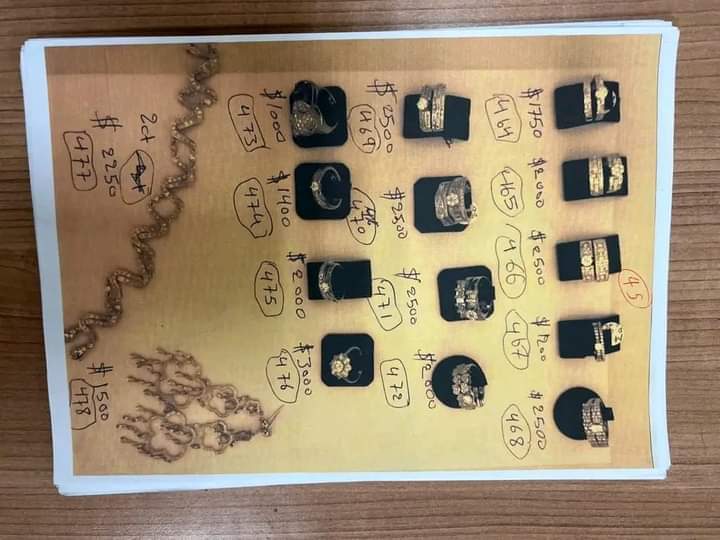 45
$1750
464
$2000
465
$2500
466
$1200
467
$2500
468
$2500
469
$2500
470
$2500
471
$2000
472
$1000
473
$1400
474
$2000
475
$3000
476
2ct
$ 2250
477
$1500
478